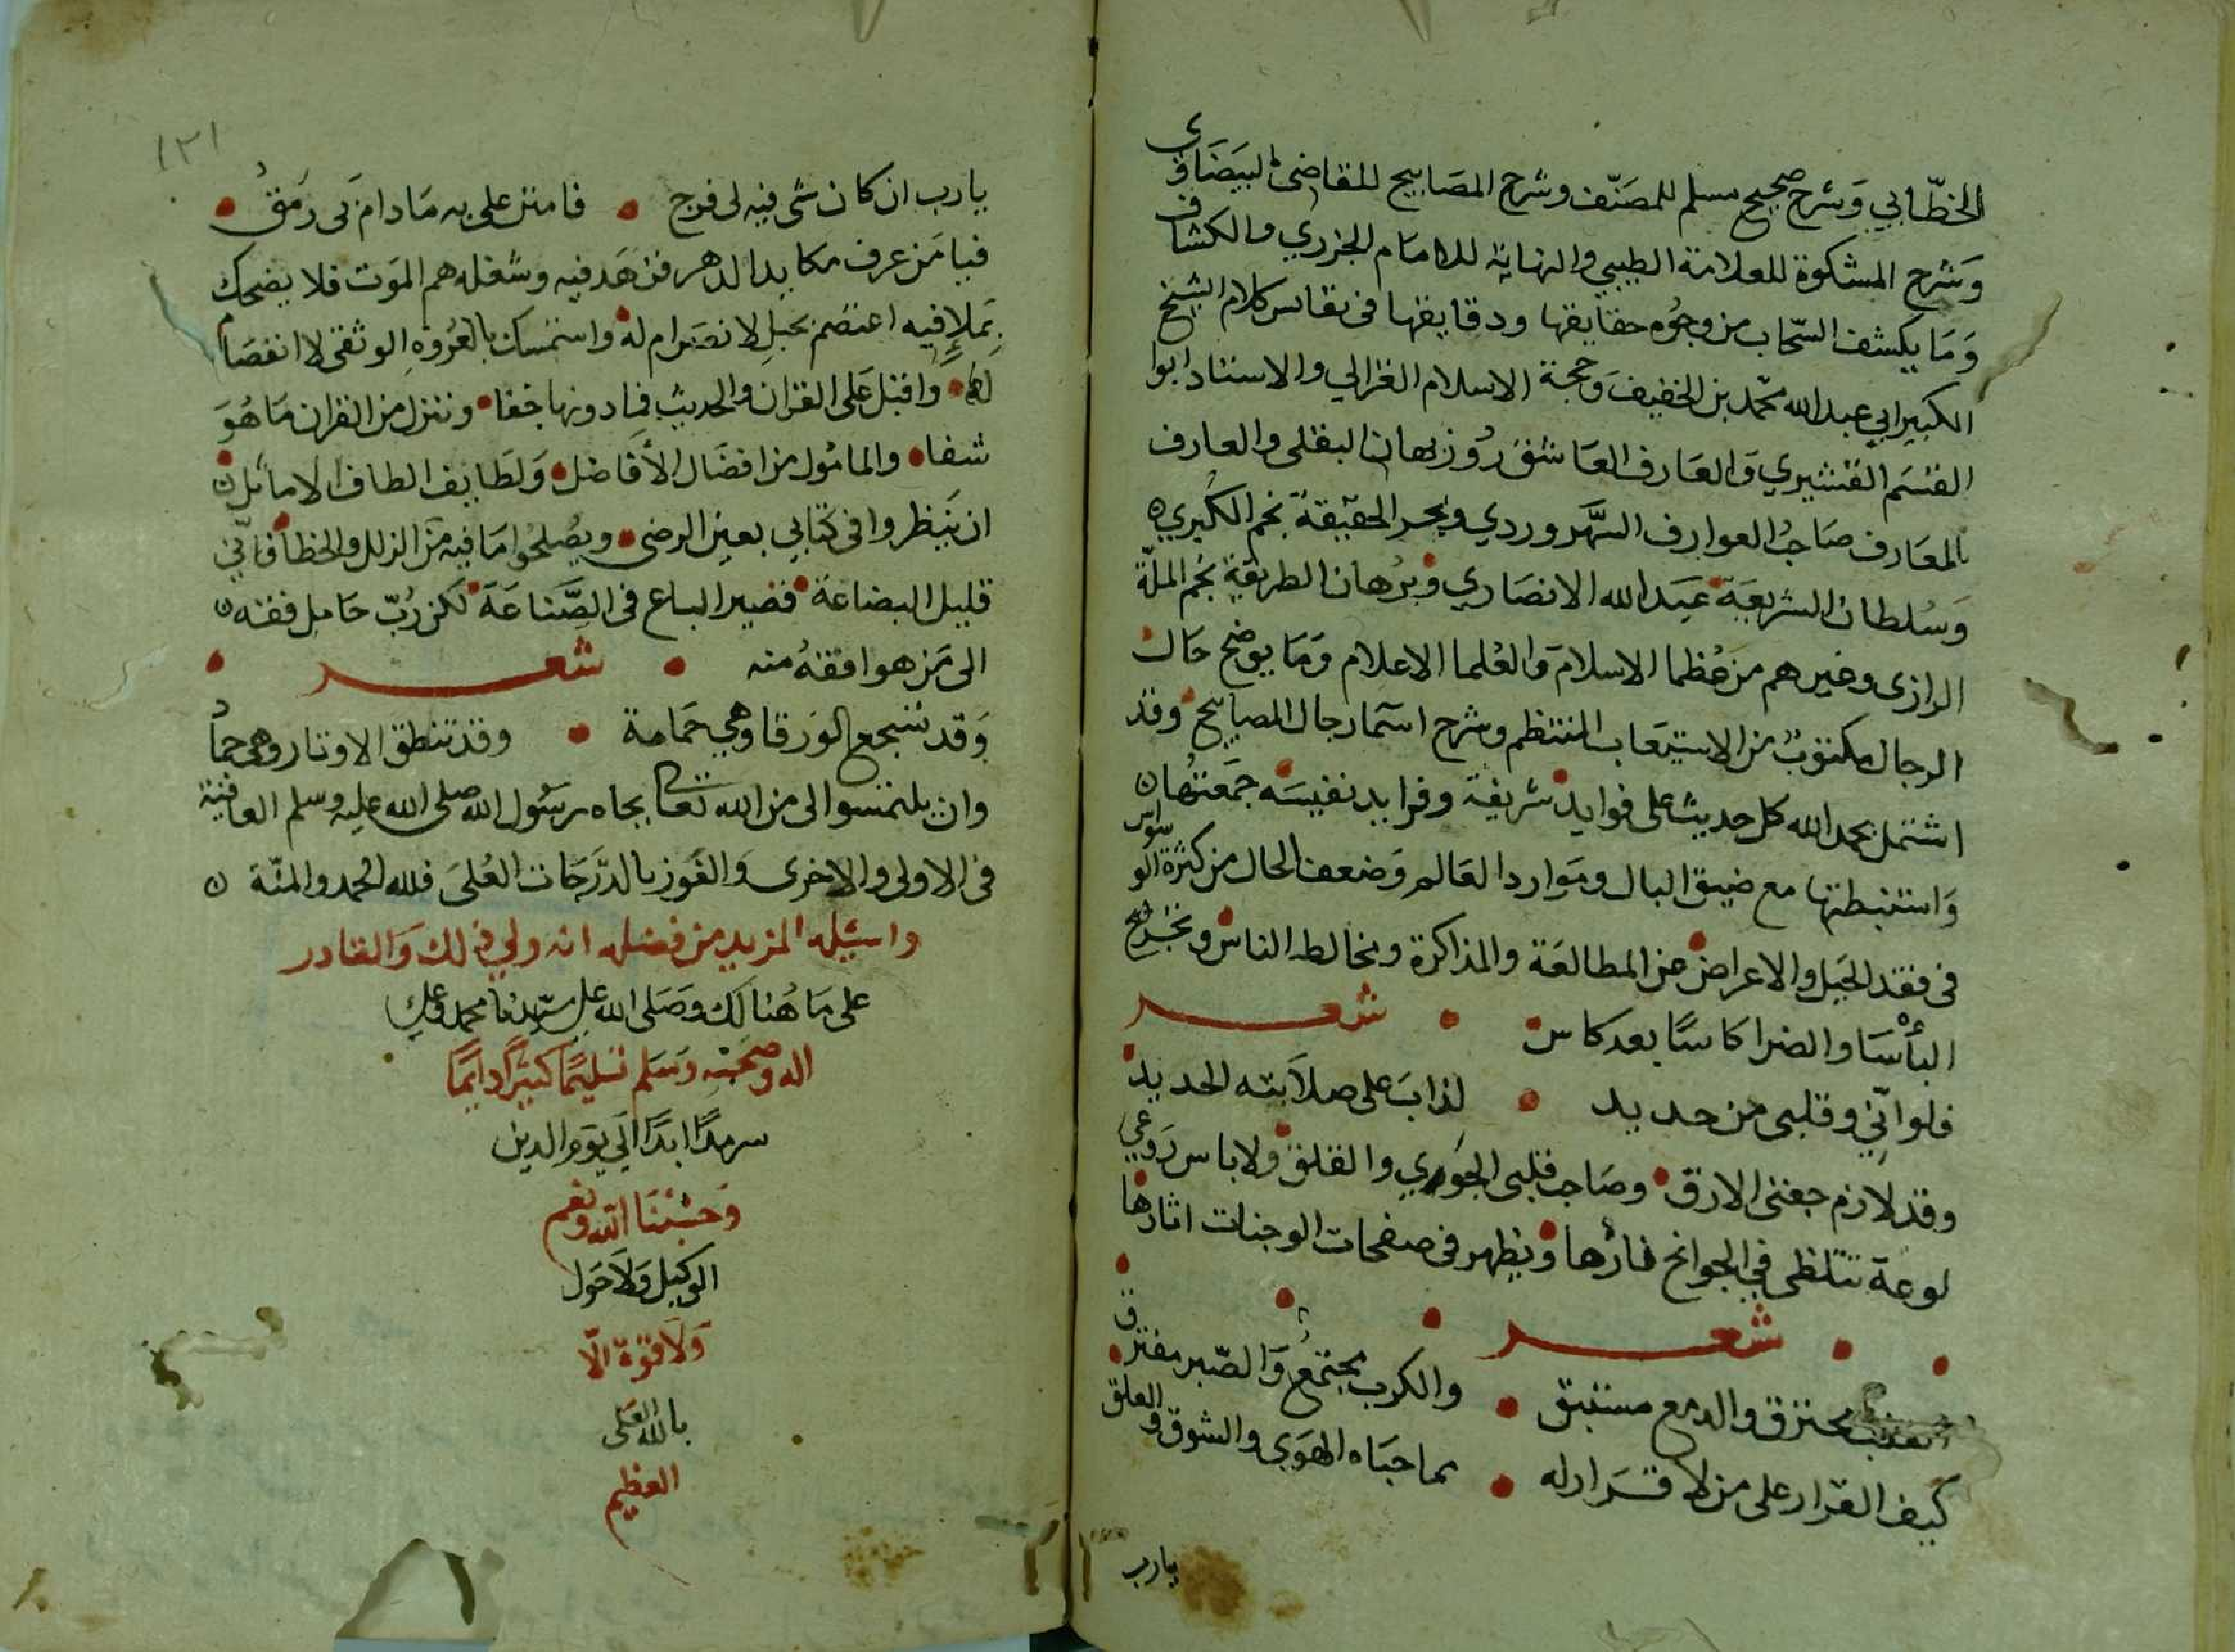 الخطّابي وَشرح صحيح مسلم للمصَنّف وشرح المصَابيح للقاضى البيَضَاوى
وَشرح المشكوة للعلامة الطيبي والنهاية للامَام الجزري والكشاف
وَمَا يكشف السّحاب من وجُوه حقايقها ودقايقها فى نفايس كلام الشيخ
الكبير ابي عبد الله محمّد بن الخفيف وَحجة الاسلام الغزالي والاستاد ابوا
القسَم القشيري وَالعَارف العَاشق رُوزبهان البقلى والعارف
بالمعَارف صَاحبُ العوارف السَّهروردي وبحر الحقيقة نجم الكبري
وَسُلطان الشريعَة عَبَد الله الانصَاري وبرُهان الطريقة نجم الملّة
الرازى وغيرهم من عُظما الاسلام وَالعُلما الاعلام وَمَا يوضح حَال
الرجال مكتوبٌ من الاستيعَاب المنتظم وشرح اسَما رجال المصابيح وقد
اشتمل بحمد الله كل حديث على فوايد شريفة وفرايد نفيسَه جمَعتُها
وَاستنبطتها مع ضيق البال ومَوارد العَالم وَضعف الحال من كثرة الوسواس
فى فقد الجَيل والاعراض عن المطالعَة والمذاكرة ومخالطه الناس وتجرّع
البأسَا والضرا كاسًا بعد كاس شعر
فلو انّي وقلبى من حديد لذابَ على صلاَبته الحديد
وقد لازم جفنى الارق وصَاحب قلبى الجَوي والقلق ولا باس رَوعي
لوعة تتلظى في الجوانح نارُها ويظهر فى صفحات الوجنات اثارها
شعر
القلب محترق والدمع مستبق والكرب مجتمعُ وَالصّبر مفترق
كيف القرار على من لا قرَار له مما جَناه الهوَى والشوق والعلق
يارب
١٢١
يارب ان كان شى فيه لى فرج فامنن على به مَادام بى رمَقُ
فيا مَن عرف مكايد الدهر فزهَد فيه وشغله هم الموَت فلا يضحك
بمَلإ فيه اعتصم بحبلِ لا نصَرام له واستمسك بالعُروه الوثقى لا انفصَام
لها وَاقبَل عَلى القران والحديث فما دونها خفا وننزل من القران مَا هُوَ
شفا والمامُول من افضَال الأفَاضل وَلطَايف الطاف الاماثل
ان ينَظروا فى كتابي بعين الرضى ويصُلحُوا مَا فيه من الزلل والخطا فانّي
قليل البضاعة قصير الباع فى الصِّناعَة لكن رُبّ حَامل فقه
الى مَن هو افقهُ منه شعر
وَقد تسَجع الوَرقا وهي حَمامة وقد تنطق الاوتار وهي جمادُ
وان يلتمسوا لى من الله تعالى بجاه رسَول الله صلى الله عليه وسلم العافية
فى الاولى والاخرى وَالفَوز بالدّرَجَات العُلىَ فلله الحمد والمنّة
واسئله المزيد من فضله انه ولي ذلك وَالقادر
على مَا هُنالك وَصَلى الله على سيّدنا محمد وعلى
اله وصَحبه وَسَلم تسليمًا كثيرًا دايمًا
سرمدًا ابدًا الي يوم الدين
وَحسْبُنَا الله ونعم
الوكيل وَلاَ حَول
وَلاَ قوّة الّا
بالله العَلى
العظيم